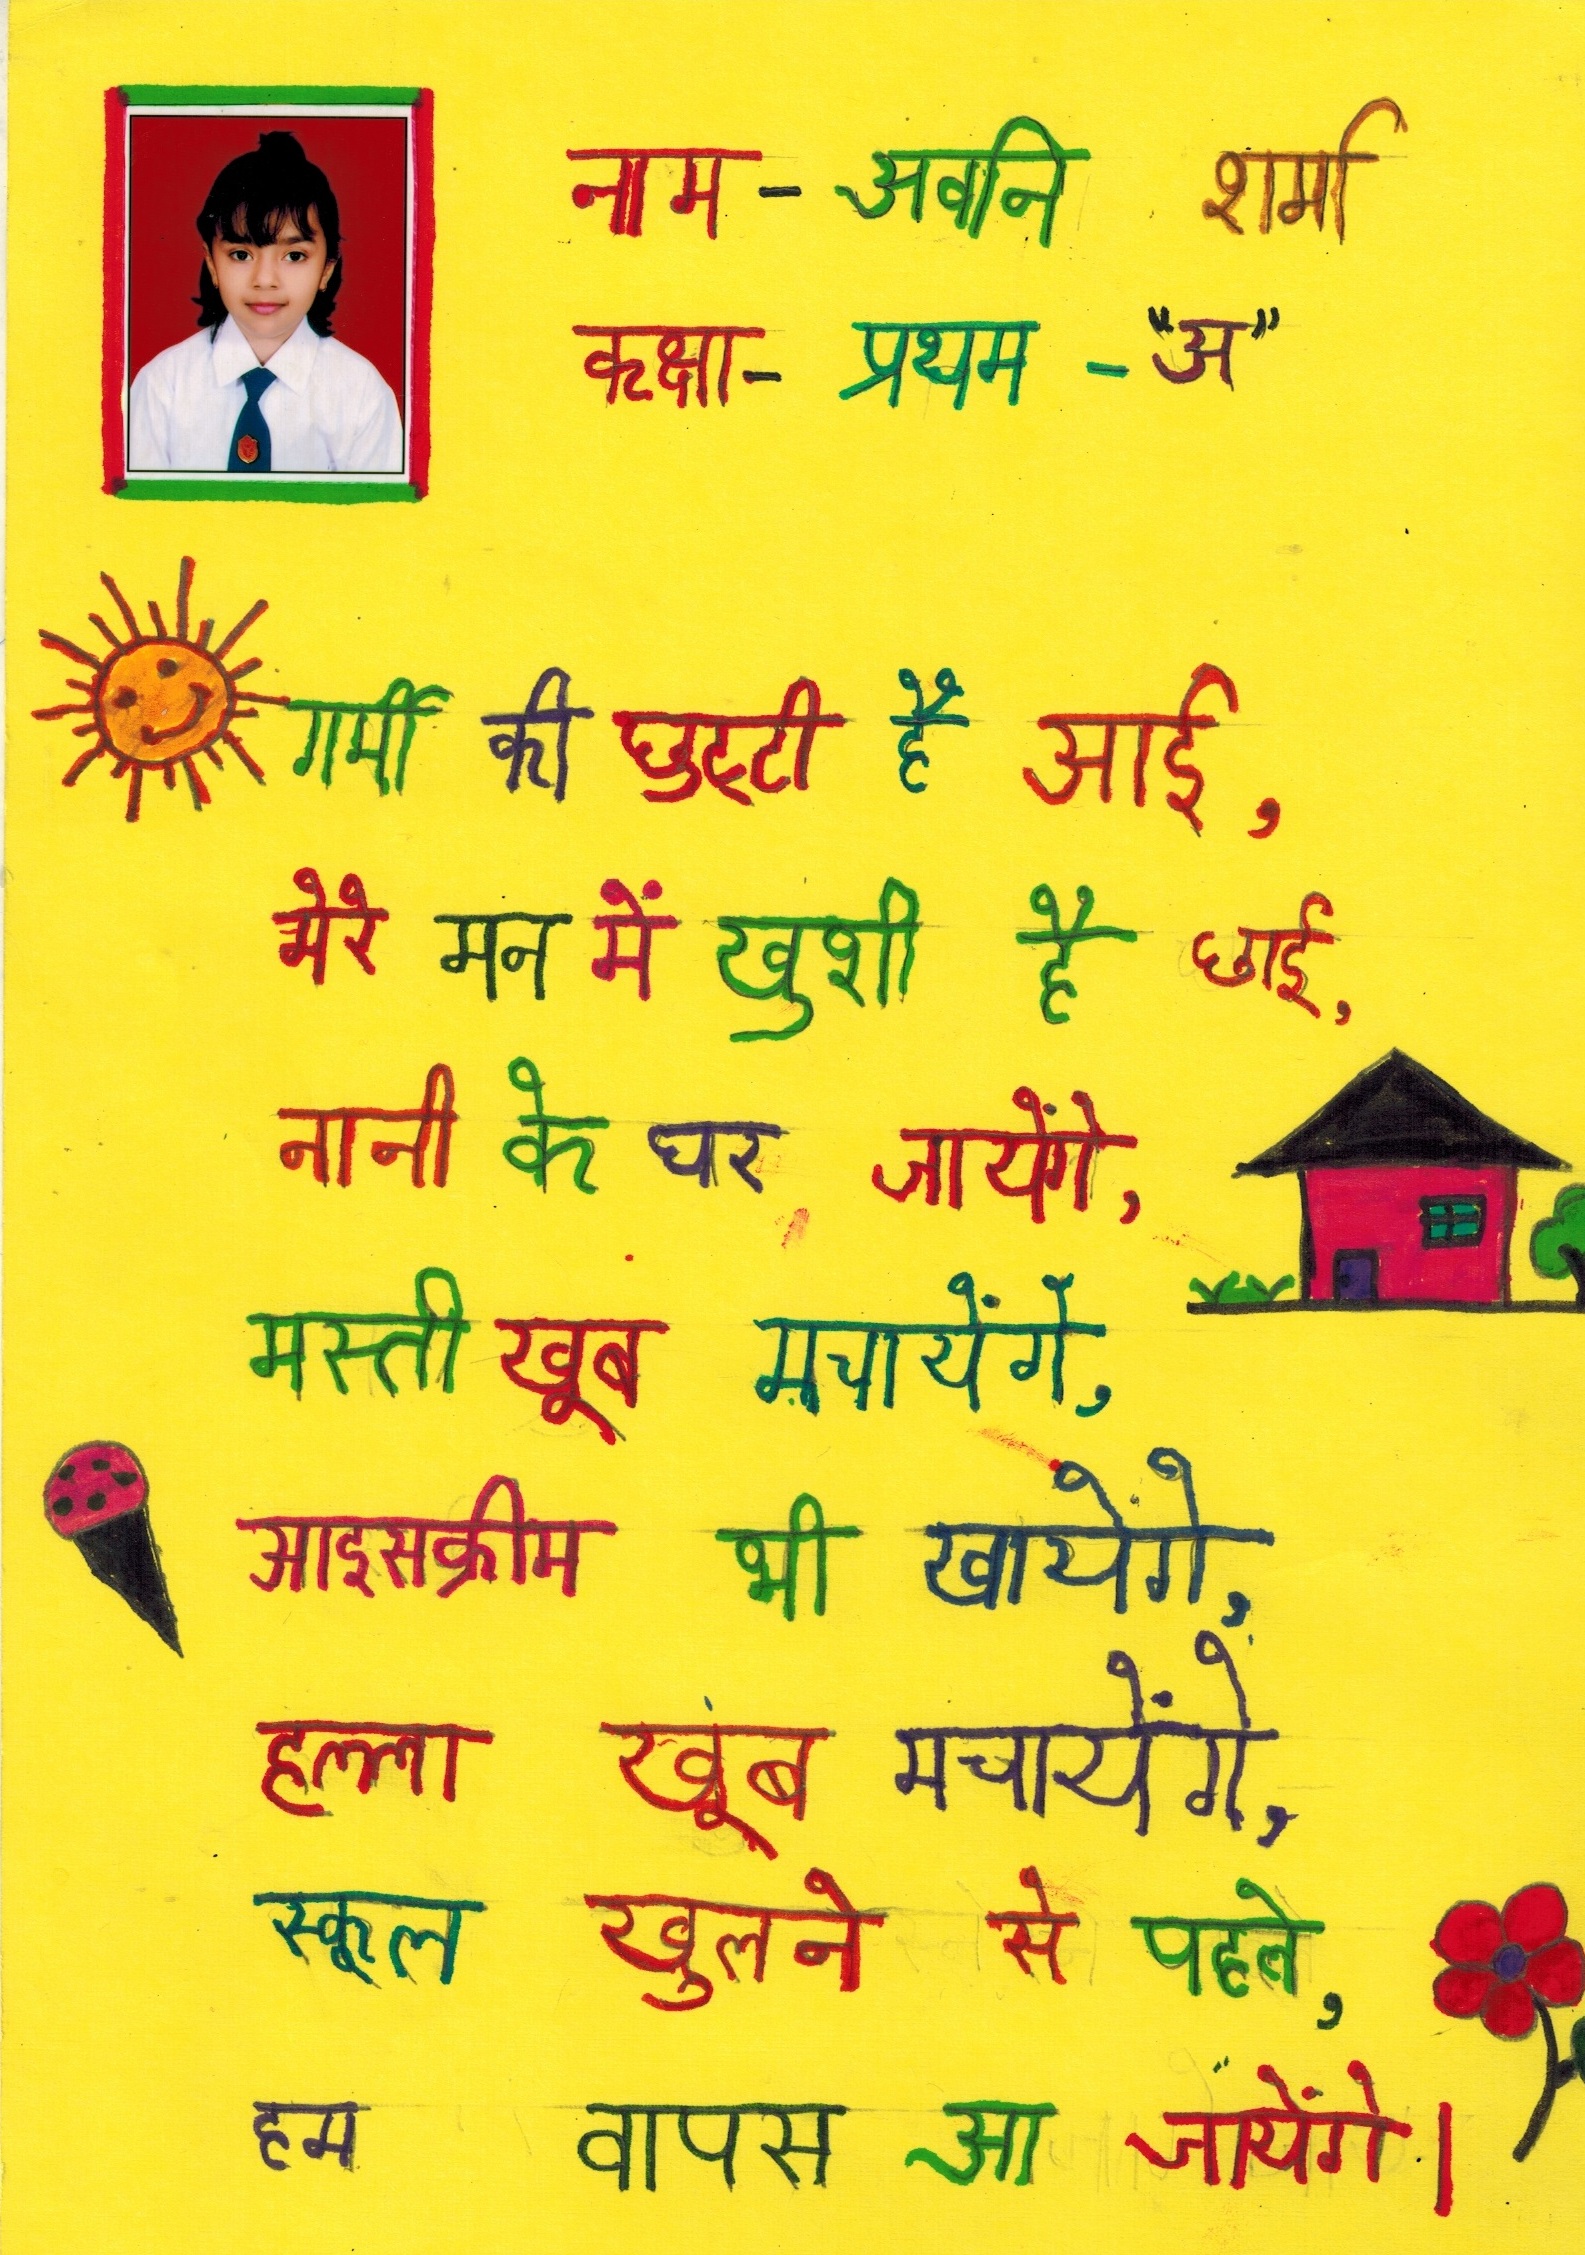 नाम - अवनि शर्मा
कक्षा - प्रथम - "अ"
गर्मी की छुट्टी है आई,
मेरे मन में खुशी है छाई,
नानी के घर जायेंगे,
मस्ती खूब मचायेंगे,
आइसक्रीम भी खायेंगे,
हल्ला खूब मचायेंगे,
स्कूल खुलने से पहले,
हम वापस आ जायेंगे।